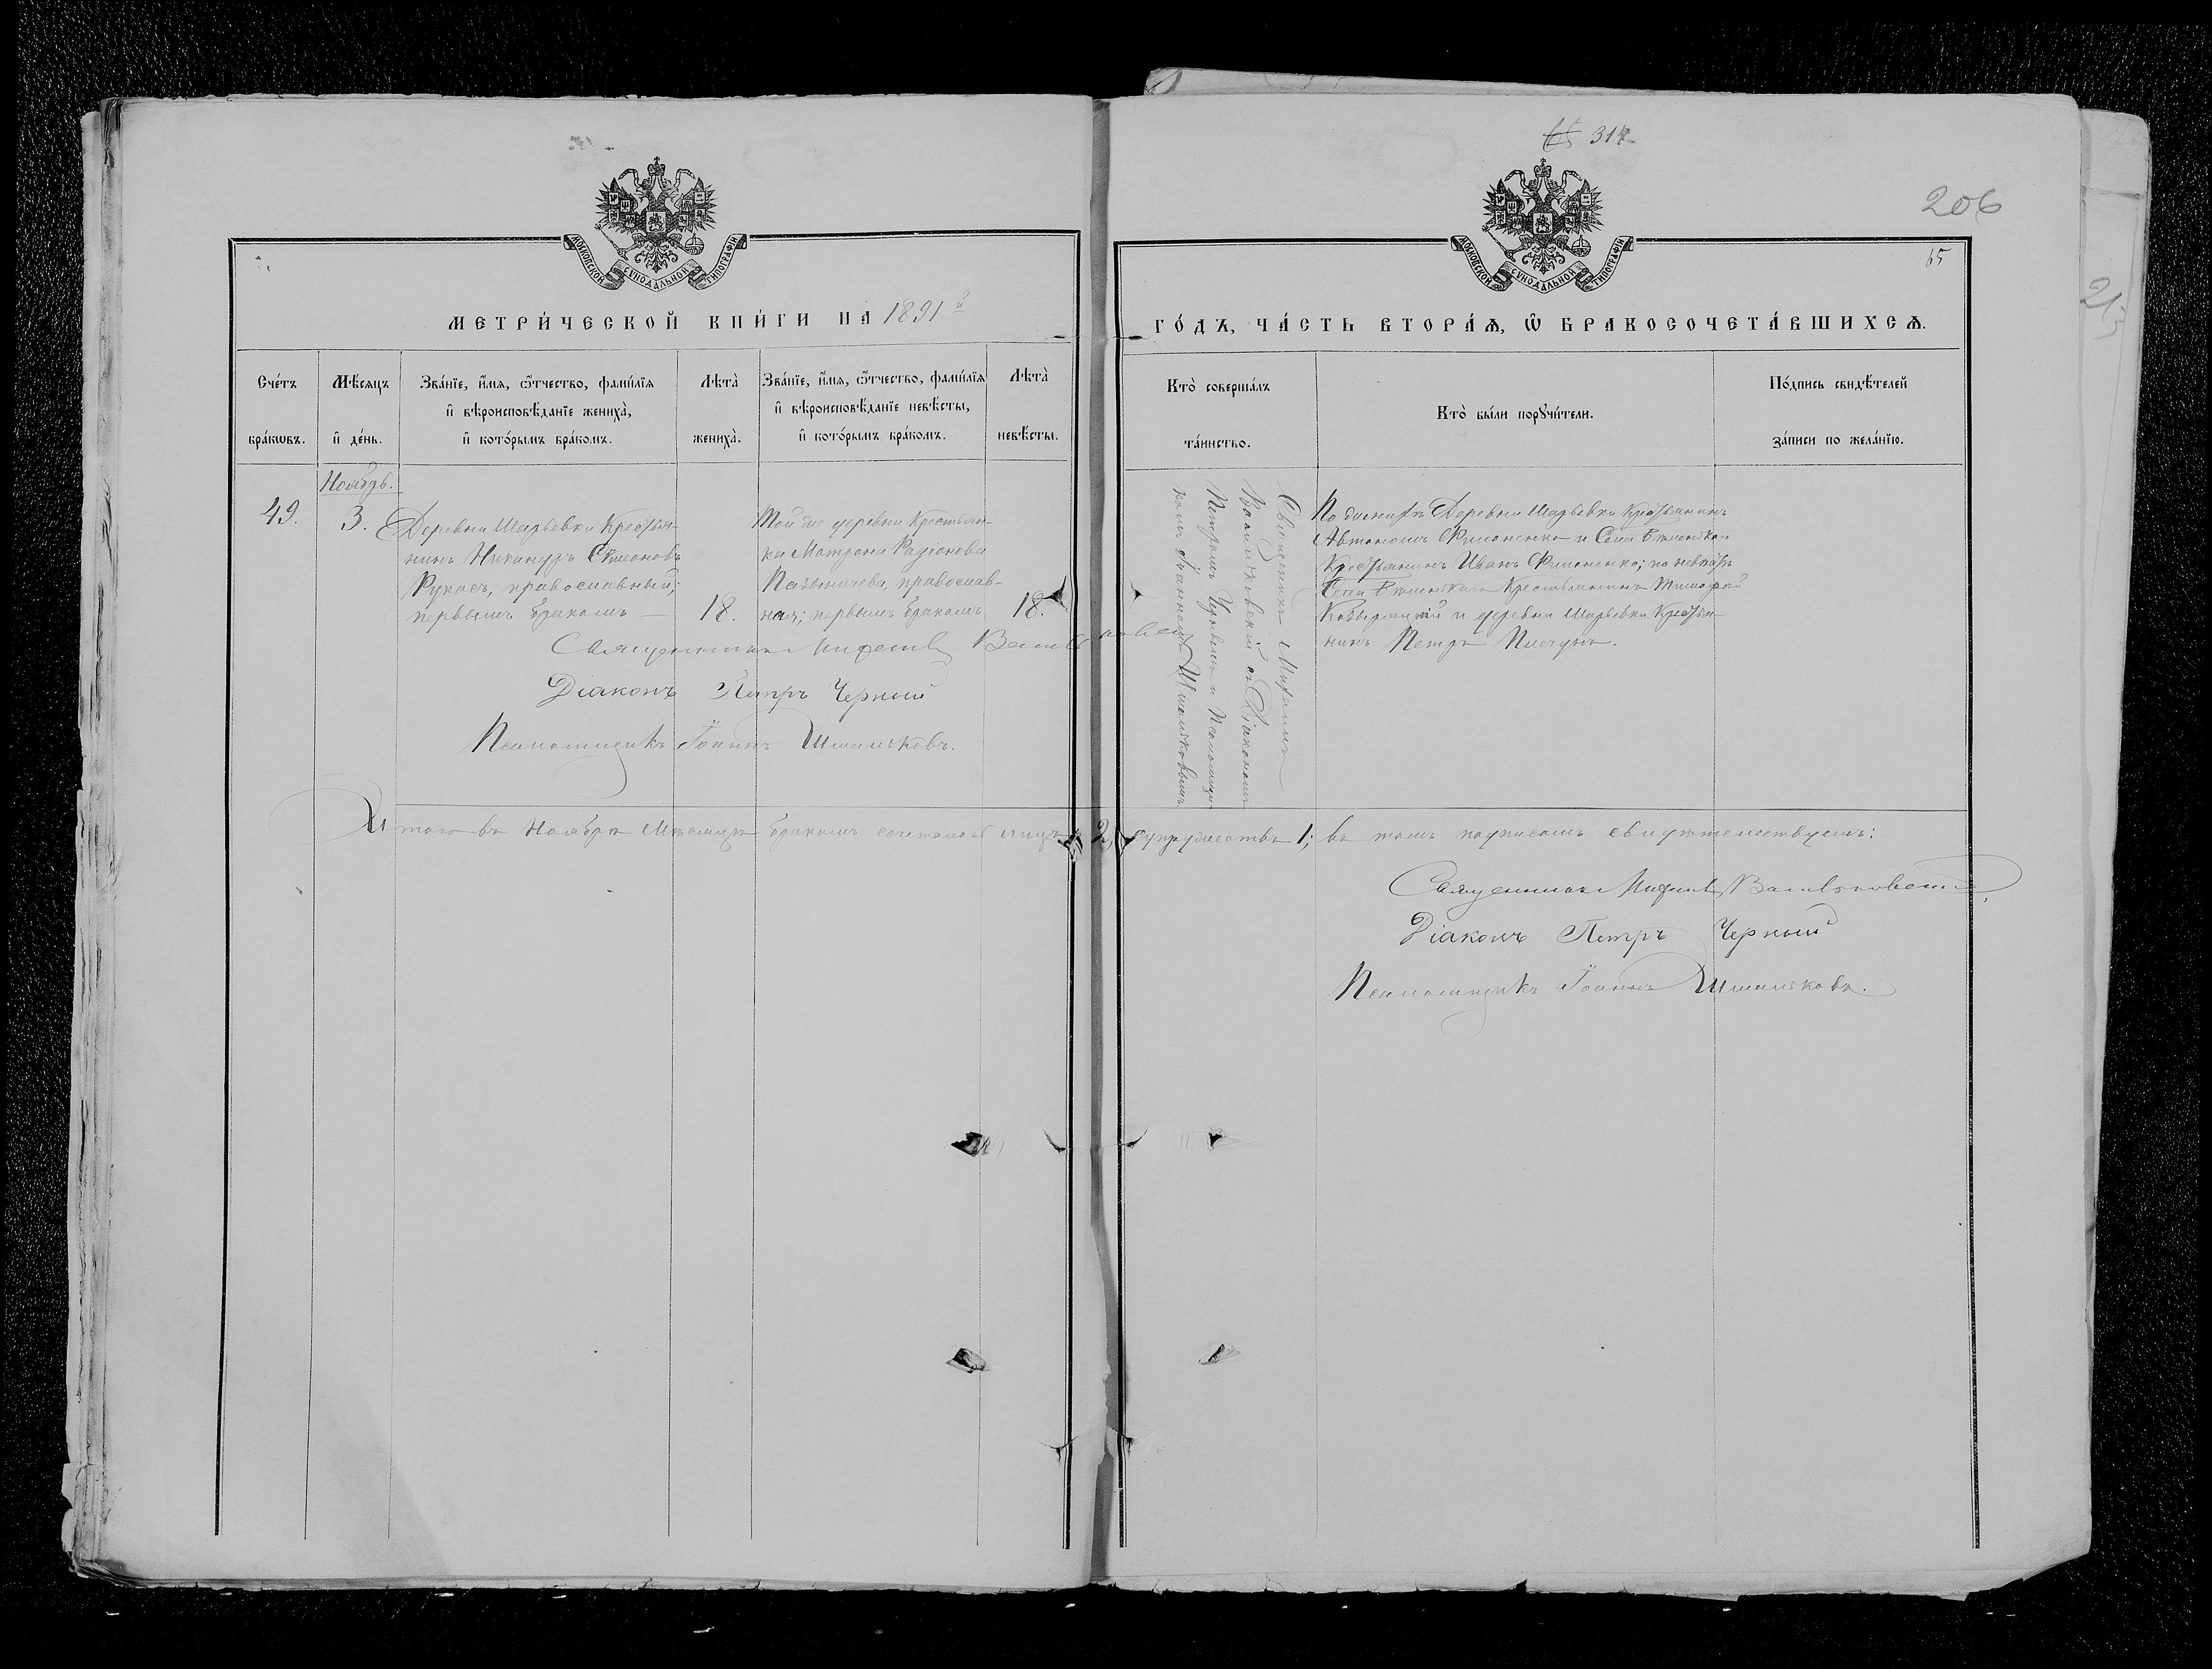 МОСКОВСКОЙ СѴНОДАЛЬНОЙ ТИПОГРАФІИ
МЕТРИ́ЧЕСКОЙ КНИ́ГИ НА 1891й
Сче́тъ бра́кѡвъ.
Мѣ́сяцъ и҆ де́нь.
Зва́нїе, и҆́мя, ѻ҆́тчество, фами́лїя
и҆ вѣроисповѣ́данїе жениха̀,
и҆ кото́рымъ бра́комъ.
Лѣта̀ жениха̀.
Зва́нїе, и҆́мя, ѻ҆́тчество, фами́лїя
и҆ вѣроисповѣ́данїе невѣ́сты,
и҆ кото́рымъ бра́комъ.
Лѣта̀ невѣ́сты.
Ноябрь.
49.
3.
Деревни Шадьевки Крестья-
нинъ Никаноръ Симеоновъ
Рукасъ, православный;
первымъ бракомъ
18.
Той же деревни Крестьян-
ка Матрона Радіонова
православ-
ная; первымъ бракомъ
18.
Священникъ
Діаконъ Петръ Черный
Псаломщикъ Іоаннъ Шмальковъ.
Итого въ Ноябрѣ Мѣсяцѣ бракомъ сочеталось лицъ 2, супружествъ 1; въ томъ подписомъ свидѣтельствуемъ:
65 317
206
65
21
МОСКОВСКОЙ СѴНОДАЛЬНОЙ ТИПОГРАФІИ
ГО́ДЪ, ЧА́СТЬ ВТОРА́Ѧ, Ѽ БРАКОСОЧЕТА́ВШИХСѦ.
Кто̀ соверша́лъ
та́инство.
Кто̀ бы́ли порꙋчи́тели.
По́дпись свидѣ́телей
за́писи по жела́нїю.
Священникъ
съ Діакономъ
Петромъ Чернымъ и Псаломщи-
комъ Іоанномъ Шмальковымъ.
По женихѣ Деревни Шадьевки Крестьянинъ
Автономъ Филоненко и Села
Крестьянинъ Иванъ Филоненко; по невѣстѣ
Села Крестьянинъ Тимофей
и деревни Шадьевки Крестья-
нинъ Петръ
Священникъ
Діаконъ Петръ Черный
Псаломщикъ Іоаннъ Шмальковъ.